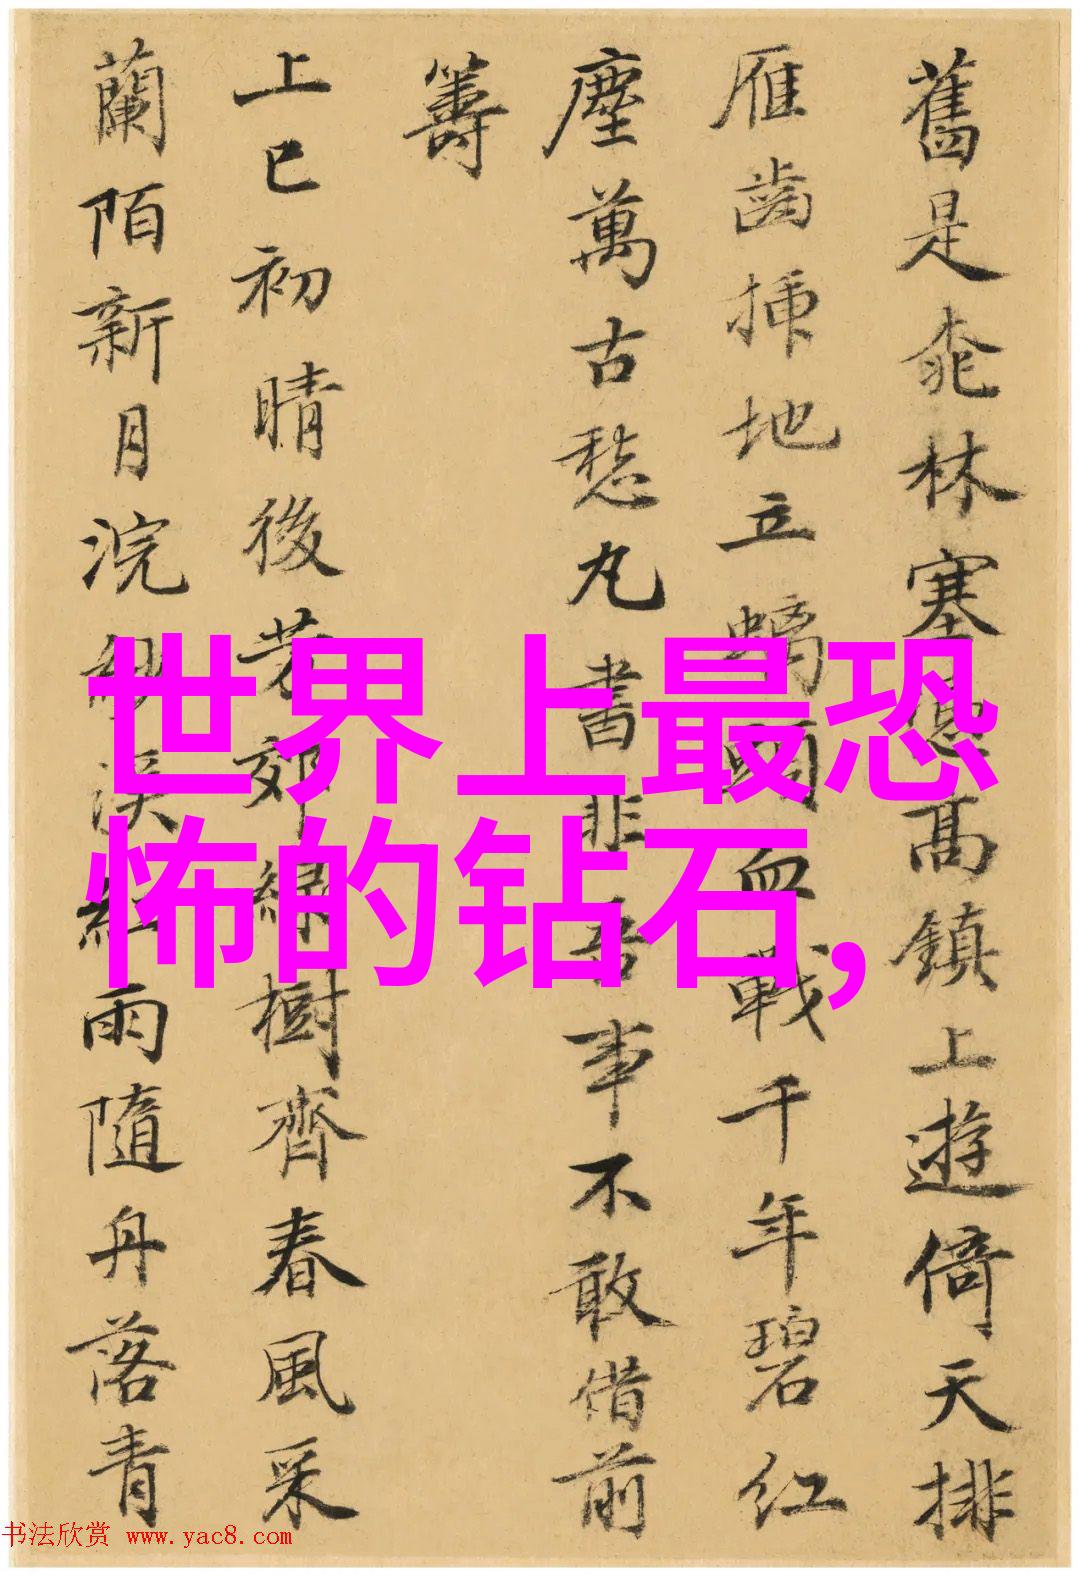 舊是桃林塞憑高鎮上遊倚天排
雁齒插地立螭頭血戰千年碧紅
塵萬古愁丸書非吾事不敢借前
籌
上巳初晴後芳郊綠樹齊春風采
蘭陌新月浣紗溪紅雨隨舟落青
世界上最恐
怖的钻石,
书法欣赏 www.yac8.com